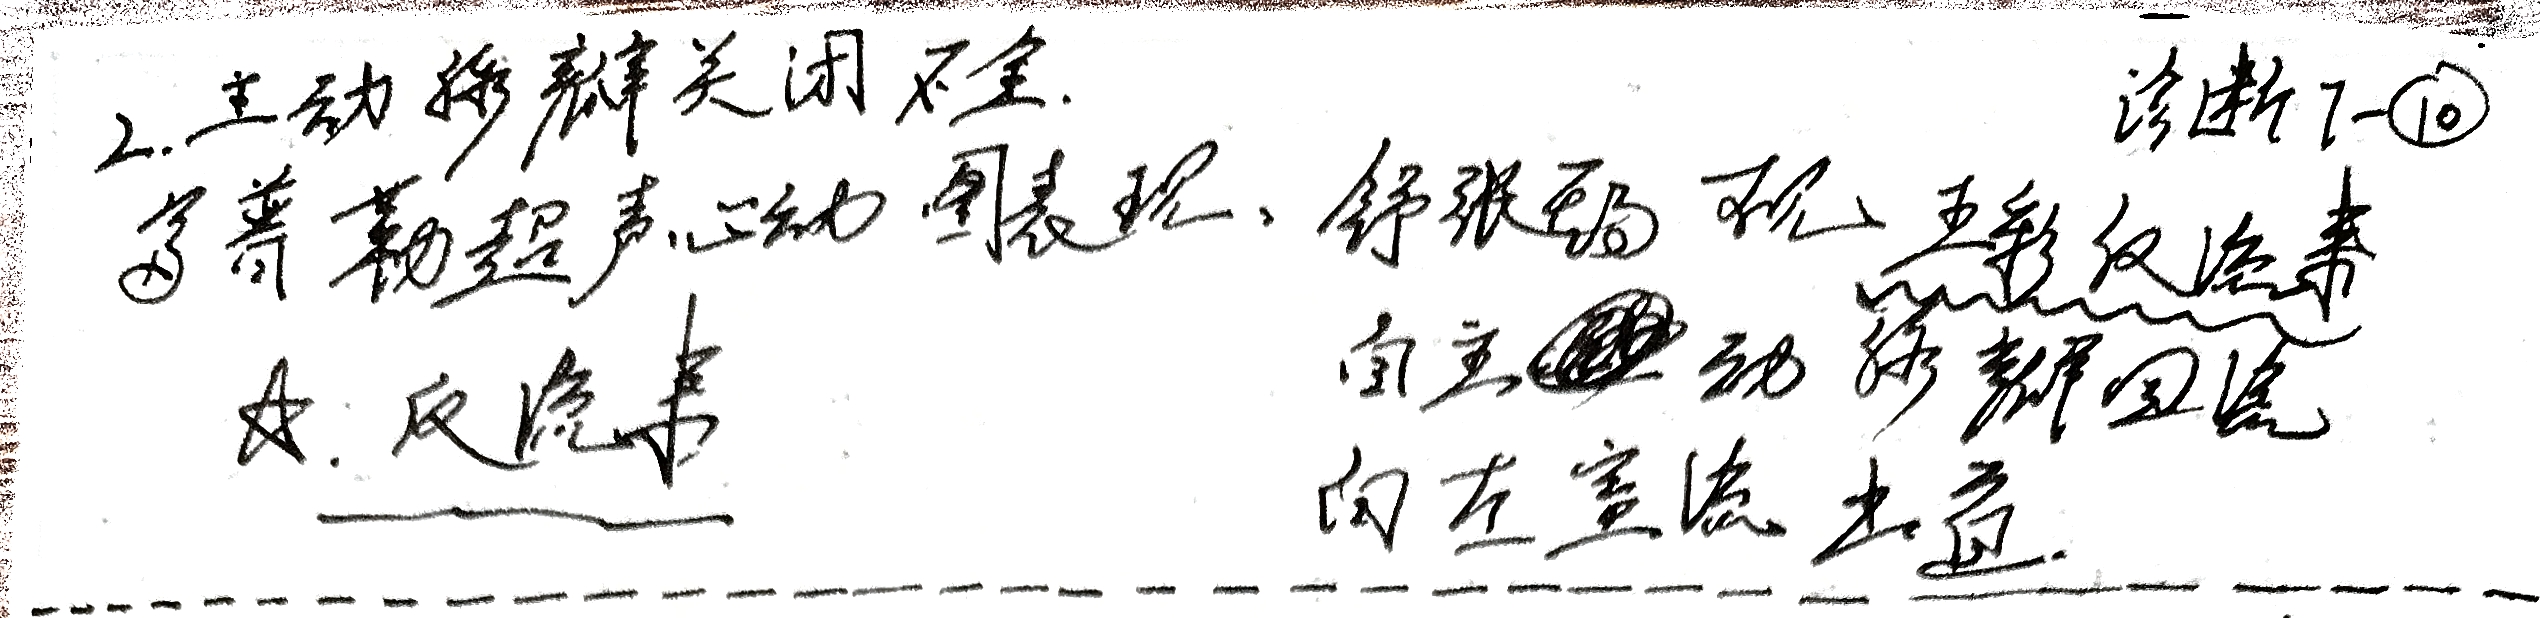 诊断7-⑩
2.主动脉瓣关闭不全.
多普勒超声心动图表现、舒张期可见五彩反流束
☆.反流束
自主动脉瓣回流
向左室流出道.